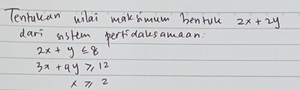 Tentukan nilai maksimum bentuk 2x + 2y
dari sistem pertidaksamaan:
2x + y ≤ 8
3x + 4y ≥ 12
x ≥ 2